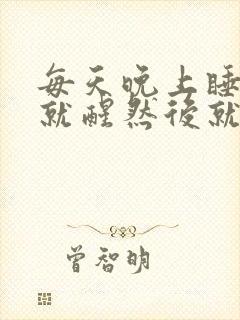 每天晚上睡
就醒然後就
曾智明